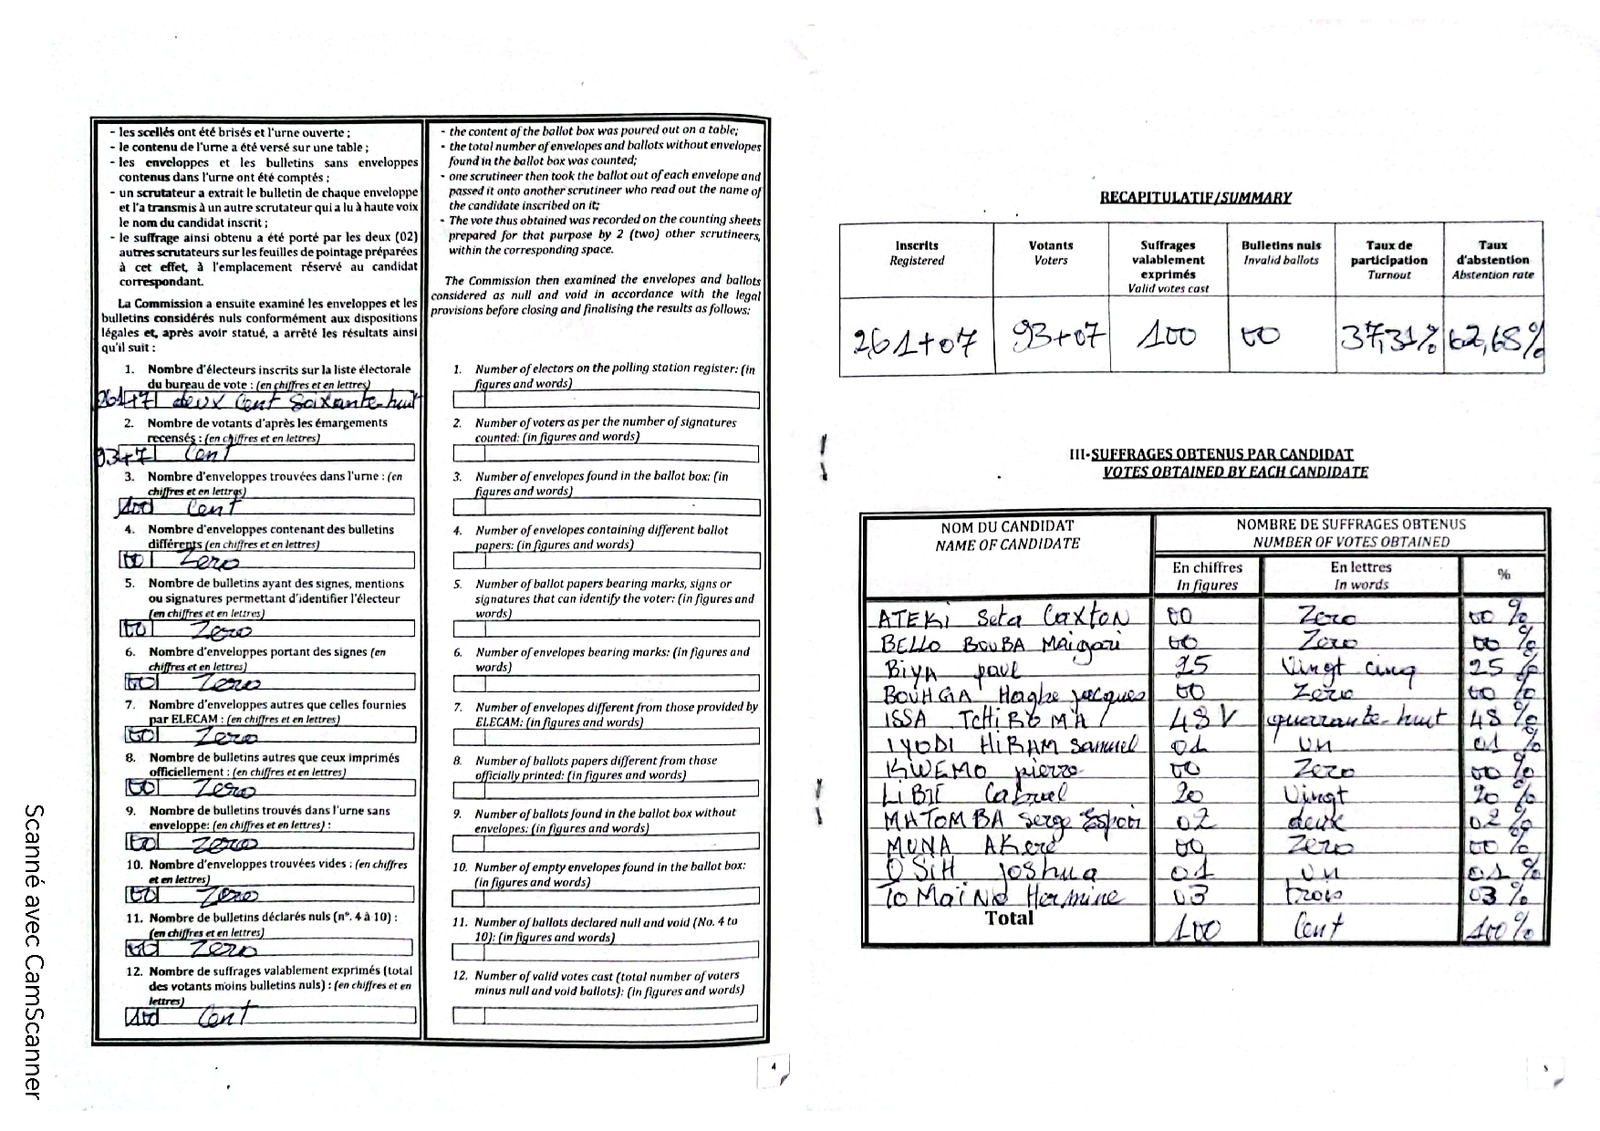 - les scellés ont été brisés et l'urne ouverte ;
- le contenu de l'urne a été versé sur une table ;
- les enveloppes et les bulletins sans enveloppes
contenus dans l'urne ont été comptés ;
- un scrutateur a extrait le bulletin de chaque enveloppe
et l'a transmis à un autre scrutateur qui a lu à haute voix
le nom du candidat inscrit ;
- le suffrage ainsi obtenu a été porté par les deux (02)
autres scrutateurs sur les feuilles de pointage préparées
à cet effet, à l'emplacement réservé au candidat
correspondant.
La Commission a ensuite examiné les enveloppes et les
bulletins considérés nuls conformément aux dispositions
légales et, après avoir statué, a arrêté les résultats ainsi
qu'il suit :
1. Nombre d'électeurs inscrits sur la liste électorale
du bureau de vote : (en chiffres et en lettres)
261+7 deux Cent Soixante-huit
2. Nombre de votants d'après les émargements
recensés : (en chiffres et en lettres)
93+7 Cent
3. Nombre d'enveloppes trouvées dans l'urne : (en
chiffres et en lettres)
100 Cent
4. Nombre d'enveloppes contenant des bulletins
différents (en chiffres et en lettres)
00 Zero
5. Nombre de bulletins ayant des signes, mentions
ou signatures permettant d'identifier l'électeur
(en chiffres et en lettres)
00 Zero
6. Nombre d'enveloppes portant des signes (en
chiffres et en lettres)
00 Zero
7. Nombre d'enveloppes autres que celles fournies
par ELECAM : (en chiffres et en lettres)
00 Zero
8. Nombre de bulletins autres que ceux imprimés
officiellement : (en chiffres et en lettres)
00 Zero
9. Nombre de bulletins trouvés dans l'urne sans
enveloppe: (en chiffres et en lettres) :
00 Zero
10. Nombre d'enveloppes trouvées vides : (en chiffres
et en lettres)
00 Zero
11. Nombre de bulletins déclarés nuls (n°. 4 à 10) :
(en chiffres et en lettres)
00 Zero
12. Nombre de suffrages valablement exprimés (total
des votants moins bulletins nuls) : (en chiffres et en
lettres)
100 Cent
- the content of the ballot box was poured out on a table;
- the total number of envelopes and ballots without envelopes
found in the ballot box was counted;
- one scrutineer then took the ballot out of each envelope and
passed it onto another scrutineer who read out the name of
the candidate inscribed on it;
- The vote thus obtained was recorded on the counting sheets
prepared for that purpose by 2 (two) other scrutineers,
within the corresponding space.
The Commission then examined the envelopes and ballots
considered as null and void in accordance with the legal
provisions before closing and finalising the results as follows:
1. Number of electors on the polling station register: (in
figures and words)
2. Number of voters as per the number of signatures
counted: (in figures and words)
3. Number of envelopes found in the ballot box: (in
figures and words)
4. Number of envelopes containing different ballot
papers: (in figures and words)
5. Number of ballot papers bearing marks, signs or
signatures that can identify the voter: (in figures and
words)
6. Number of envelopes bearing marks: (in figures and
words)
7. Number of envelopes different from those provided by
ELECAM: (in figures and words)
8. Number of ballots papers different from those
officially printed: (in figures and words)
9. Number of ballots found in the ballot box without
envelopes: (in figures and words)
10. Number of empty envelopes found in the ballot box:
(in figures and words)
11. Number of ballots declared null and void (No. 4 to
10): (in figures and words)
12. Number of valid votes cast (total number of voters
minus null and void ballots): (in figures and words)
4
RECAPITULATIF/SUMMARY
Inscrits Votants Suffrages valablement exprimés Bulletins nuls Taux de participation Taux d'abstention
Registered Voters Valid votes cast Invalid ballots Turnout Abstention rate
261+07 93+07 100 00 37,31% 62,68%
III-SUFFRAGES OBTENUS PAR CANDIDAT
VOTES OBTAINED BY EACH CANDIDATE
NOM DU CANDIDAT NOMBRE DE SUFFRAGES OBTENUS
NAME OF CANDIDATE NUMBER OF VOTES OBTAINED
En chiffres En lettres %
In figures In words
ATEKi Seta Caxton 00 Zero 00 %
BELLO BOUBA Maigari 00 Zero 00 %
BiYA paul 25 Vingt cinq 25 %
BOUHGIA Hagbe jacques 00 Zero 00 %
ISSA TCHiROMA 48 V quarante-huit 48 %
IYODI HiRAM Samuel 01 un 01 %
KWEMO pierre 00 Zero 00 %
LiBII Cabruel 20 Vingt 20 %
MATOMBA Serge Espoir 02 deux 02 %
MUNA AKere 00 Zero 00 %
OSiH Joshua 01 un 01 %
ToMaïNo Hermine 03 trois 03 %
Total 100 Cent 100 %
5
Scanné avec CamScanner